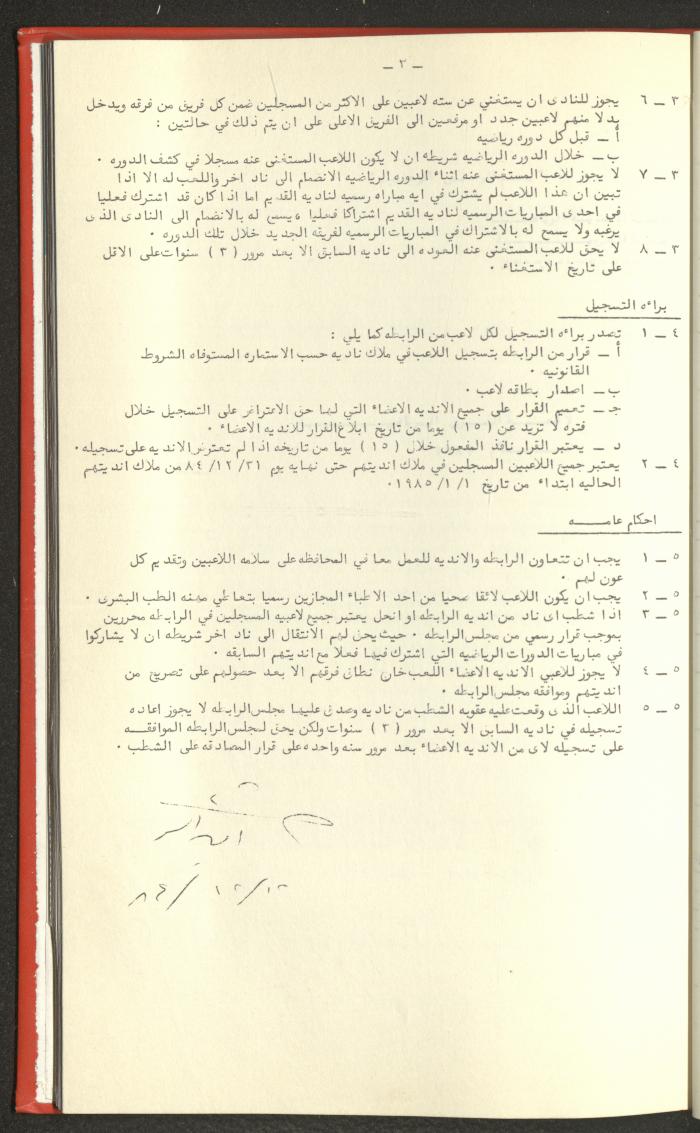 - ٢ -
٣ - ٦ يجوز للنادى ان يستغني عن سته لاعبين على الاكثر من المسجلين ضمن كل فريق من فرقه ويدخل
بدلا منهم لاعبين جدد او مرفعين الى الفريق الاعلى على ان يتم ذلك في حالتين :
أ - قبل كل دوره رياضيه
ب - خلال الدوره الرياضيه شريطه ان لا يكون اللاعب المستغنى عنه مسجلا في كشف الدوره ٠
٣ - ٧ لا يجوز للاعب المستغنى عنه اثناء الدوره الرياضيه الانضمام الى ناد اخر واللعب له الا اذا
تبين ان هذا اللاعب لم يشترك في ايه مباراه رسميه لناديه القديم اما اذا كان قد اشترك فعليا
في احدى المباريات الرسميه لناديه القديم اشتراكا فعليا ، يسمح له بالانضمام الى النادى الذى
يرغبه ولا يسمح له بالاشتراك في المباريات الرسميه لفريقه الجديد خلال تلك الدوره ٠
٣ - ٨ لا يحق للاعب المستغنى عنه العوده الى ناديه السابق الا بعد مرور ( ٣ ) سنوات على الاقل
على تاريخ الاستغناء ٠
براءه التسجيل
٤ - ١ تصدر براءه التسجيل لكل لاعب من الرابطه كما يلي :
أ - قرار من الرابطه بتسجيل اللاعب في ملاك ناديه حسب الاستماره المستوفاه الشروط
القانونيه ٠
ب - اصدار بطاقه لاعب ٠
جـ - تعميم القرار على جميع الانديه الاعضاء التي لها حق الاعتراض على التسجيل خلال
فتره لا تزيد عن ( ١٥ ) يوما من تاريخ ابلاغ القرار للانديه الاعضاء ٠
د - يعتبر القرار نافذ المفعول خلال ( ١٥ ) يوما من تاريخه اذا لم تعترض الانديه على تسجيله ٠
٤ - ٢ يعتبر جميع اللاعبين المسجلين في ملاك انديتهم حتى نهايه يوم ٣١/ ١٢/ ٨٤ من ملاك انديتهم
الحاليه ابتداء من تاريخ ١/ ١/ ١٩٨٥ ٠
احكام عامـــــه
٥ - ١ يجب ان تتعاون الرابطه والانديه للعمل معا في المحافظه على سلامه اللاعبين وتقديم كل
عون لهم ٠
٥ - ٢ يجب ان يكون اللاعب لائقا صحيا من احد الاطباء المجازين رسميا بتعاطي مهنه الطب البشرى ٠
٥ - ٣ اذا شطب اى ناد من انديه الرابطه او انحل يعتبر جميع لاعبيه المسجلين في الرابطه محررين
بموجب قرار رسمي من مجلس الرابطه ٠ حيث يحق لهم الانتقال الى ناد اخر شريطه ان لا يشاركوا
في مباريات الدورات الرياضيه التي اشترك فيها فعلا مع انديتهم السابقه ٠
٥ - ٤ لا يجوز للاعبي الانديه الاعضاء اللعب خارج نطاق فرقهم الا بعد حصولهم على تصريح من
انديتهم وموافقه مجلس الرابطه ٠
٥ - ٥ اللاعب الذى وقعت عليه عقوبه الشطب من ناديه وصدق عليها مجلس الرابطه لا يجوز اعاده
تسجيله في ناديه السابق الا بعد مرور ( ٣ ) سنوات ولكن يحق لمجلس الرابطه الموافقـــه
على تسجيله لاى من الانديه الاعضاء بعد مرور سنه واحده على قرار المصادقه على الشطب ٠
١٢/١٢/ ٨٤